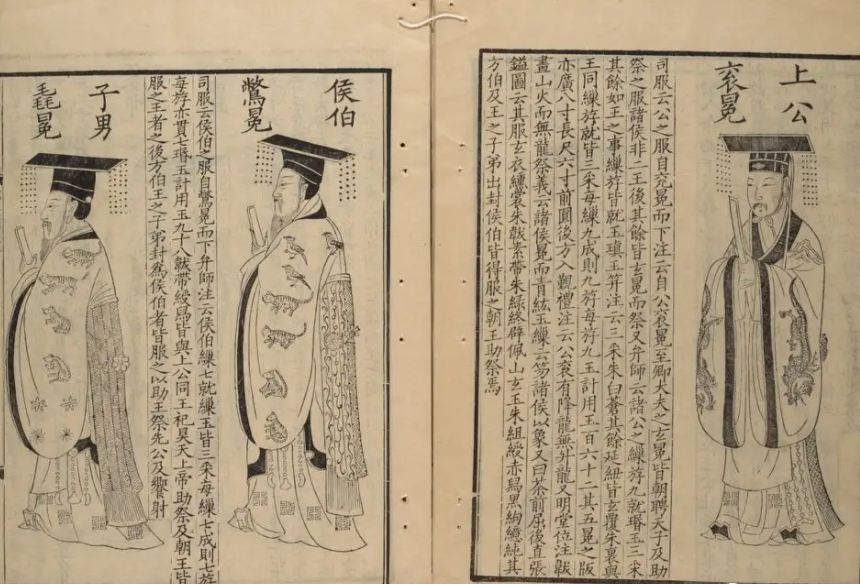 上公
袞冕
司服云公之服自袞冕而下注云自公袞冕至卿大夫之玄冕皆朝聘天子及助
祭之服諸侯非二王後其餘皆玄冕而祭又弁師云諸公之繅斿九就瑉玉三采
其餘如王之事繅斿皆就玉瑱玉笄注云三采朱白蒼其餘延紐皆玄覆朱裏與
王同繅斿就皆三采每繅九成則九斿每斿九玉計用玉百六十二其五冕之版
亦廣八寸長尺六寸前圓後方又覲禮注云公袞有降龍無升龍又明堂位注韍
畫山火而無龍祭義云諸侯冕而青紘玉繅云笏諸侯以象又曰荼前屈後直張
鎰圖云其服玄衣纁裳朱韍素帶朱綠終辟佩山玄玉朱組綬赤舄黑絇繶純其
方伯及王之子弟出封侯伯皆得服之朝王助祭焉
侯伯
鷩冕
司服云侯伯之服自鷩冕而下弁師注云侯伯繅七就繅玉皆三采每繅七成則七斿
每斿亦貫七瑉玉計用玉九十八韍帶綬舄皆與上公同王祀昊天上帝助祭及朝王皆
服之王者之後方伯王之子弟封爲侯伯者皆服之以助王祭先公及饗射
子男
毳冕